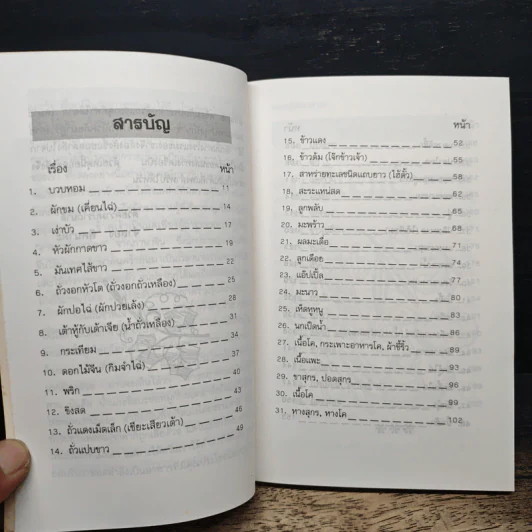 สารบัญ
เรื่อง หน้า
1. บวบหอม _ _ _ _ _ _ _ _ _ _ _ _ 11
2. ผักขม (เคี่ยนไฉ่) _ _ _ _ _ _ _ _ _ 14
3. เง่าบัว _ _ _ _ _ _ _ _ _ _ _ _ 17
4. หัวผักกาดขาว _ _ _ _ _ _ _ _ _ _ 19
5. มันเทศไส้ขาว _ _ _ _ _ _ _ _ _ _ 22
6. ถั่วงอกหัวโต (ถั่วงอกถั่วเหลือง) _ _ _ _ 25
7. ผักปอไฉ่ (ผักปวยเล้ง) _ _ _ _ _ _ _ 28
8. เต้าหู้กับเต้าเจีย (น้ำถั่วเหลือง) _ _ _ _ 31
9. กระเทียม _ _ _ _ _ _ _ _ _ _ _ 34
10. ดอกไม้จีน (กิมจำไฉ่) _ _ _ _ _ _ _ 37
11. พริก _ _ _ _ _ _ _ _ _ _ _ _ 40
12. ขิงสด _ _ _ _ _ _ _ _ _ _ _ _ 43
13. ถั่วแดงเม็ดเล็ก (เชียะเสียวเต้า) _ _ _ _ 46
14. ถั่วแปบขาว _ _ _ _ _ _ _ _ _ _ _ 49
หน้า
15. ข้าวแดง _ _ _ _ _ _ _ _ _ _ _ _ 52
16. ข้าวต้ม (โจ๊กข้าวเจ้า) _ _ _ _ _ _ _ _ 55
17. สาหร่ายทะเลชนิดแถบยาว (ไฮ้ตั้ว) _ _ _ _ 58
18. สะระแหน่สด _ _ _ _ _ _ _ _ _ _ _ 62
19. ลูกพลับ _ _ _ _ _ _ _ _ _ _ _ _ 65
20. มะพร้าว _ _ _ _ _ _ _ _ _ _ _ _ 68
21. ผลมะเดื่อ _ _ _ _ _ _ _ _ _ _ _ 71
22. ลูกเดือย _ _ _ _ _ _ _ _ _ _ _ _ 74
23. แอ๊ปเปิ้ล _ _ _ _ _ _ _ _ _ _ _ _ 77
24. มะนาว _ _ _ _ _ _ _ _ _ _ _ _ 80
25. เห็ดหูหนู _ _ _ _ _ _ _ _ _ _ _ _ 83
26. นกเป็ดน้ำ _ _ _ _ _ _ _ _ _ _ _ 86
27. เนื้อโค, กระเพาะอาหารโค, ผ้าขี้ริ้ว _ _ _ _ 89
28. เนื้อแพะ _ _ _ _ _ _ _ _ _ _ _ _ 93
29. ขาสุกร, ปอดสุกร _ _ _ _ _ _ _ _ _ 96
30. เนื้อโค _ _ _ _ _ _ _ _ _ _ _ _ 99
31. หางสุกร, หางโค _ _ _ _ _ _ _ _ _ 102